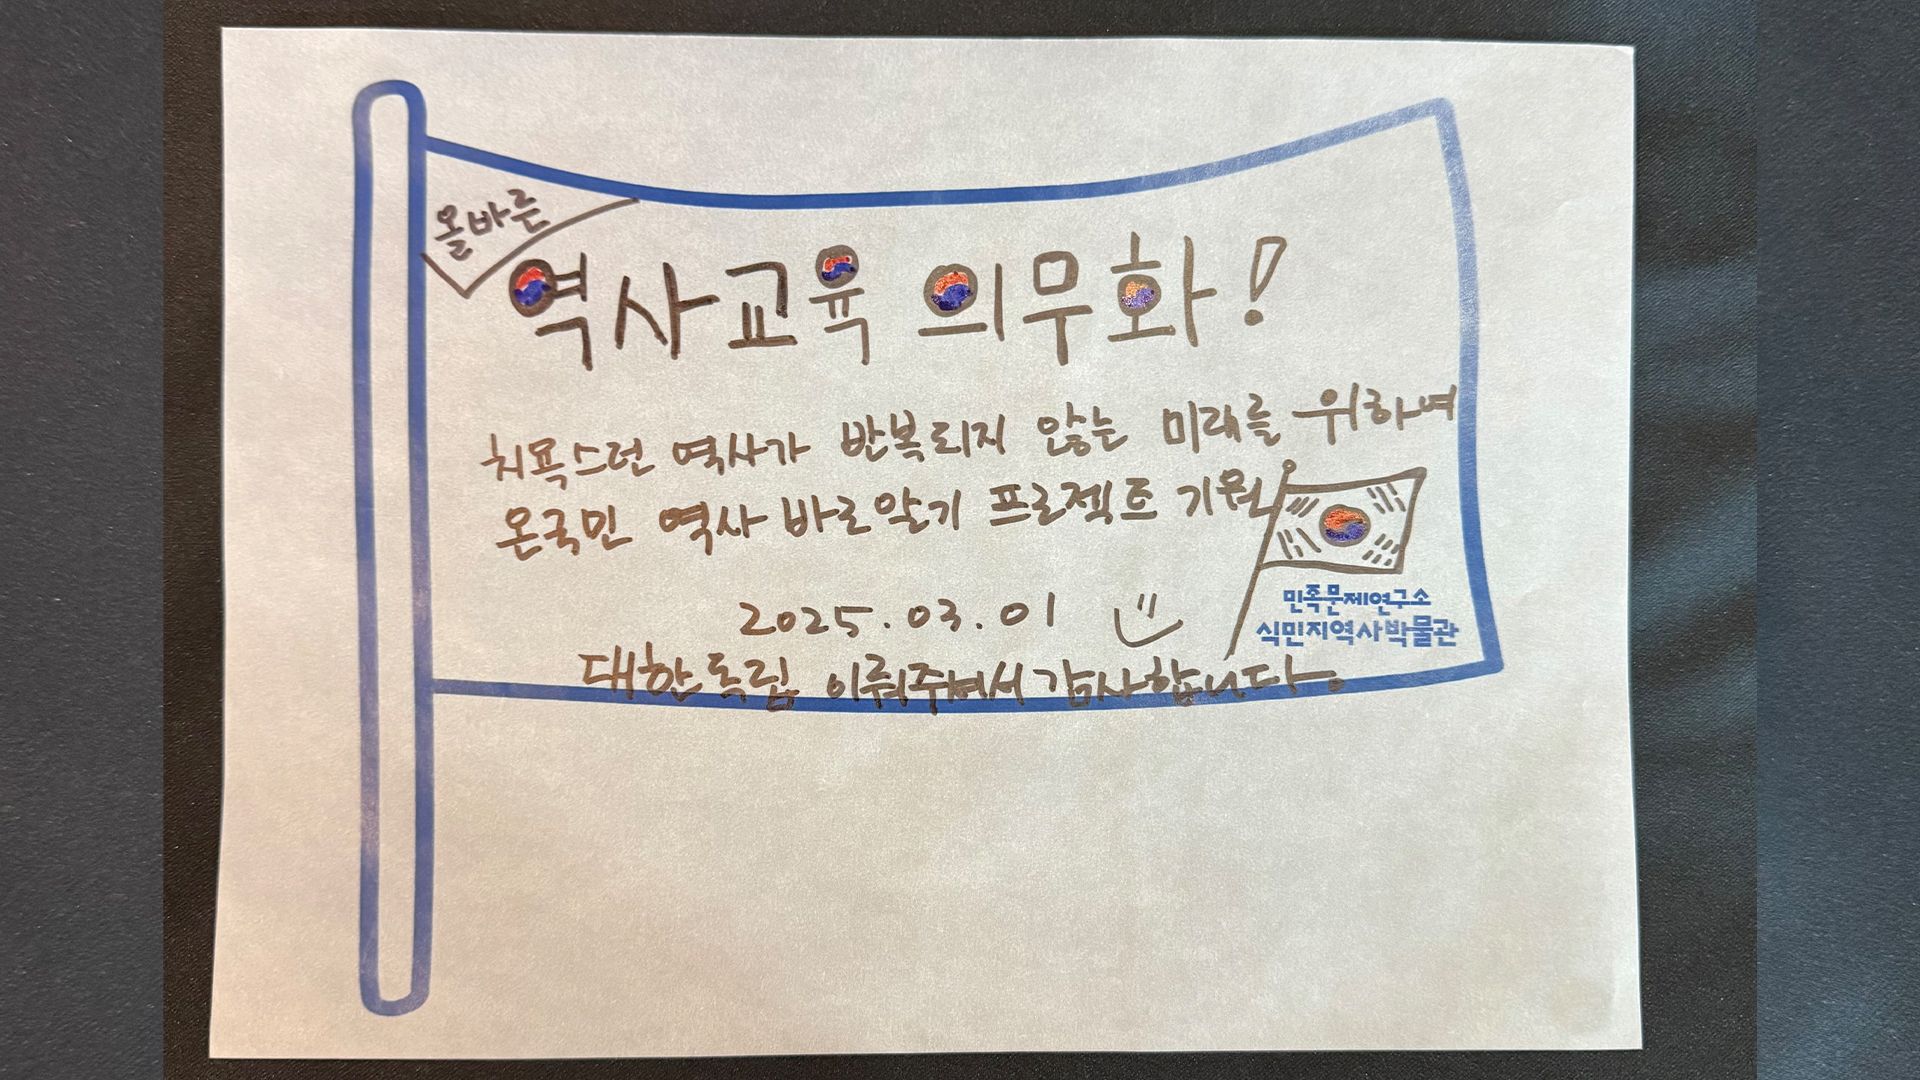 올바른
역사교육 의무화!
치욕스런 역사가 반복되지 않는 미래를 위하여
온국민 역사 바로알기 프로젝트 기원
2025.03.01
민족문제연구소
식민지역사박물관
대한독립 이뤄주셔서 감사합니다.